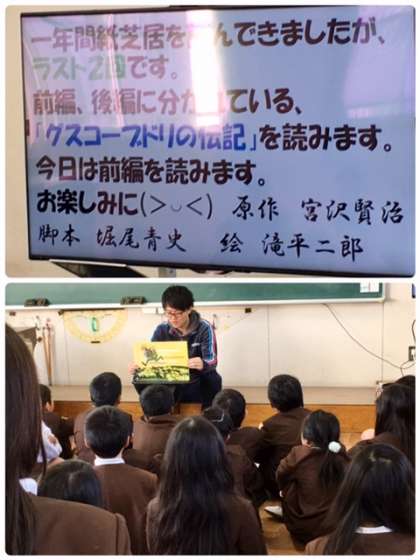 一年間紙芝居を読んできましたが、
ラスト2回です。
前編、後編に分かれている、
「グスコーブドリの伝記」を読みます。
今日は前編を読みます。
お楽しみに(>◡<) 原作 宮沢賢治
脚本 堀尾青史 絵 滝平二郎